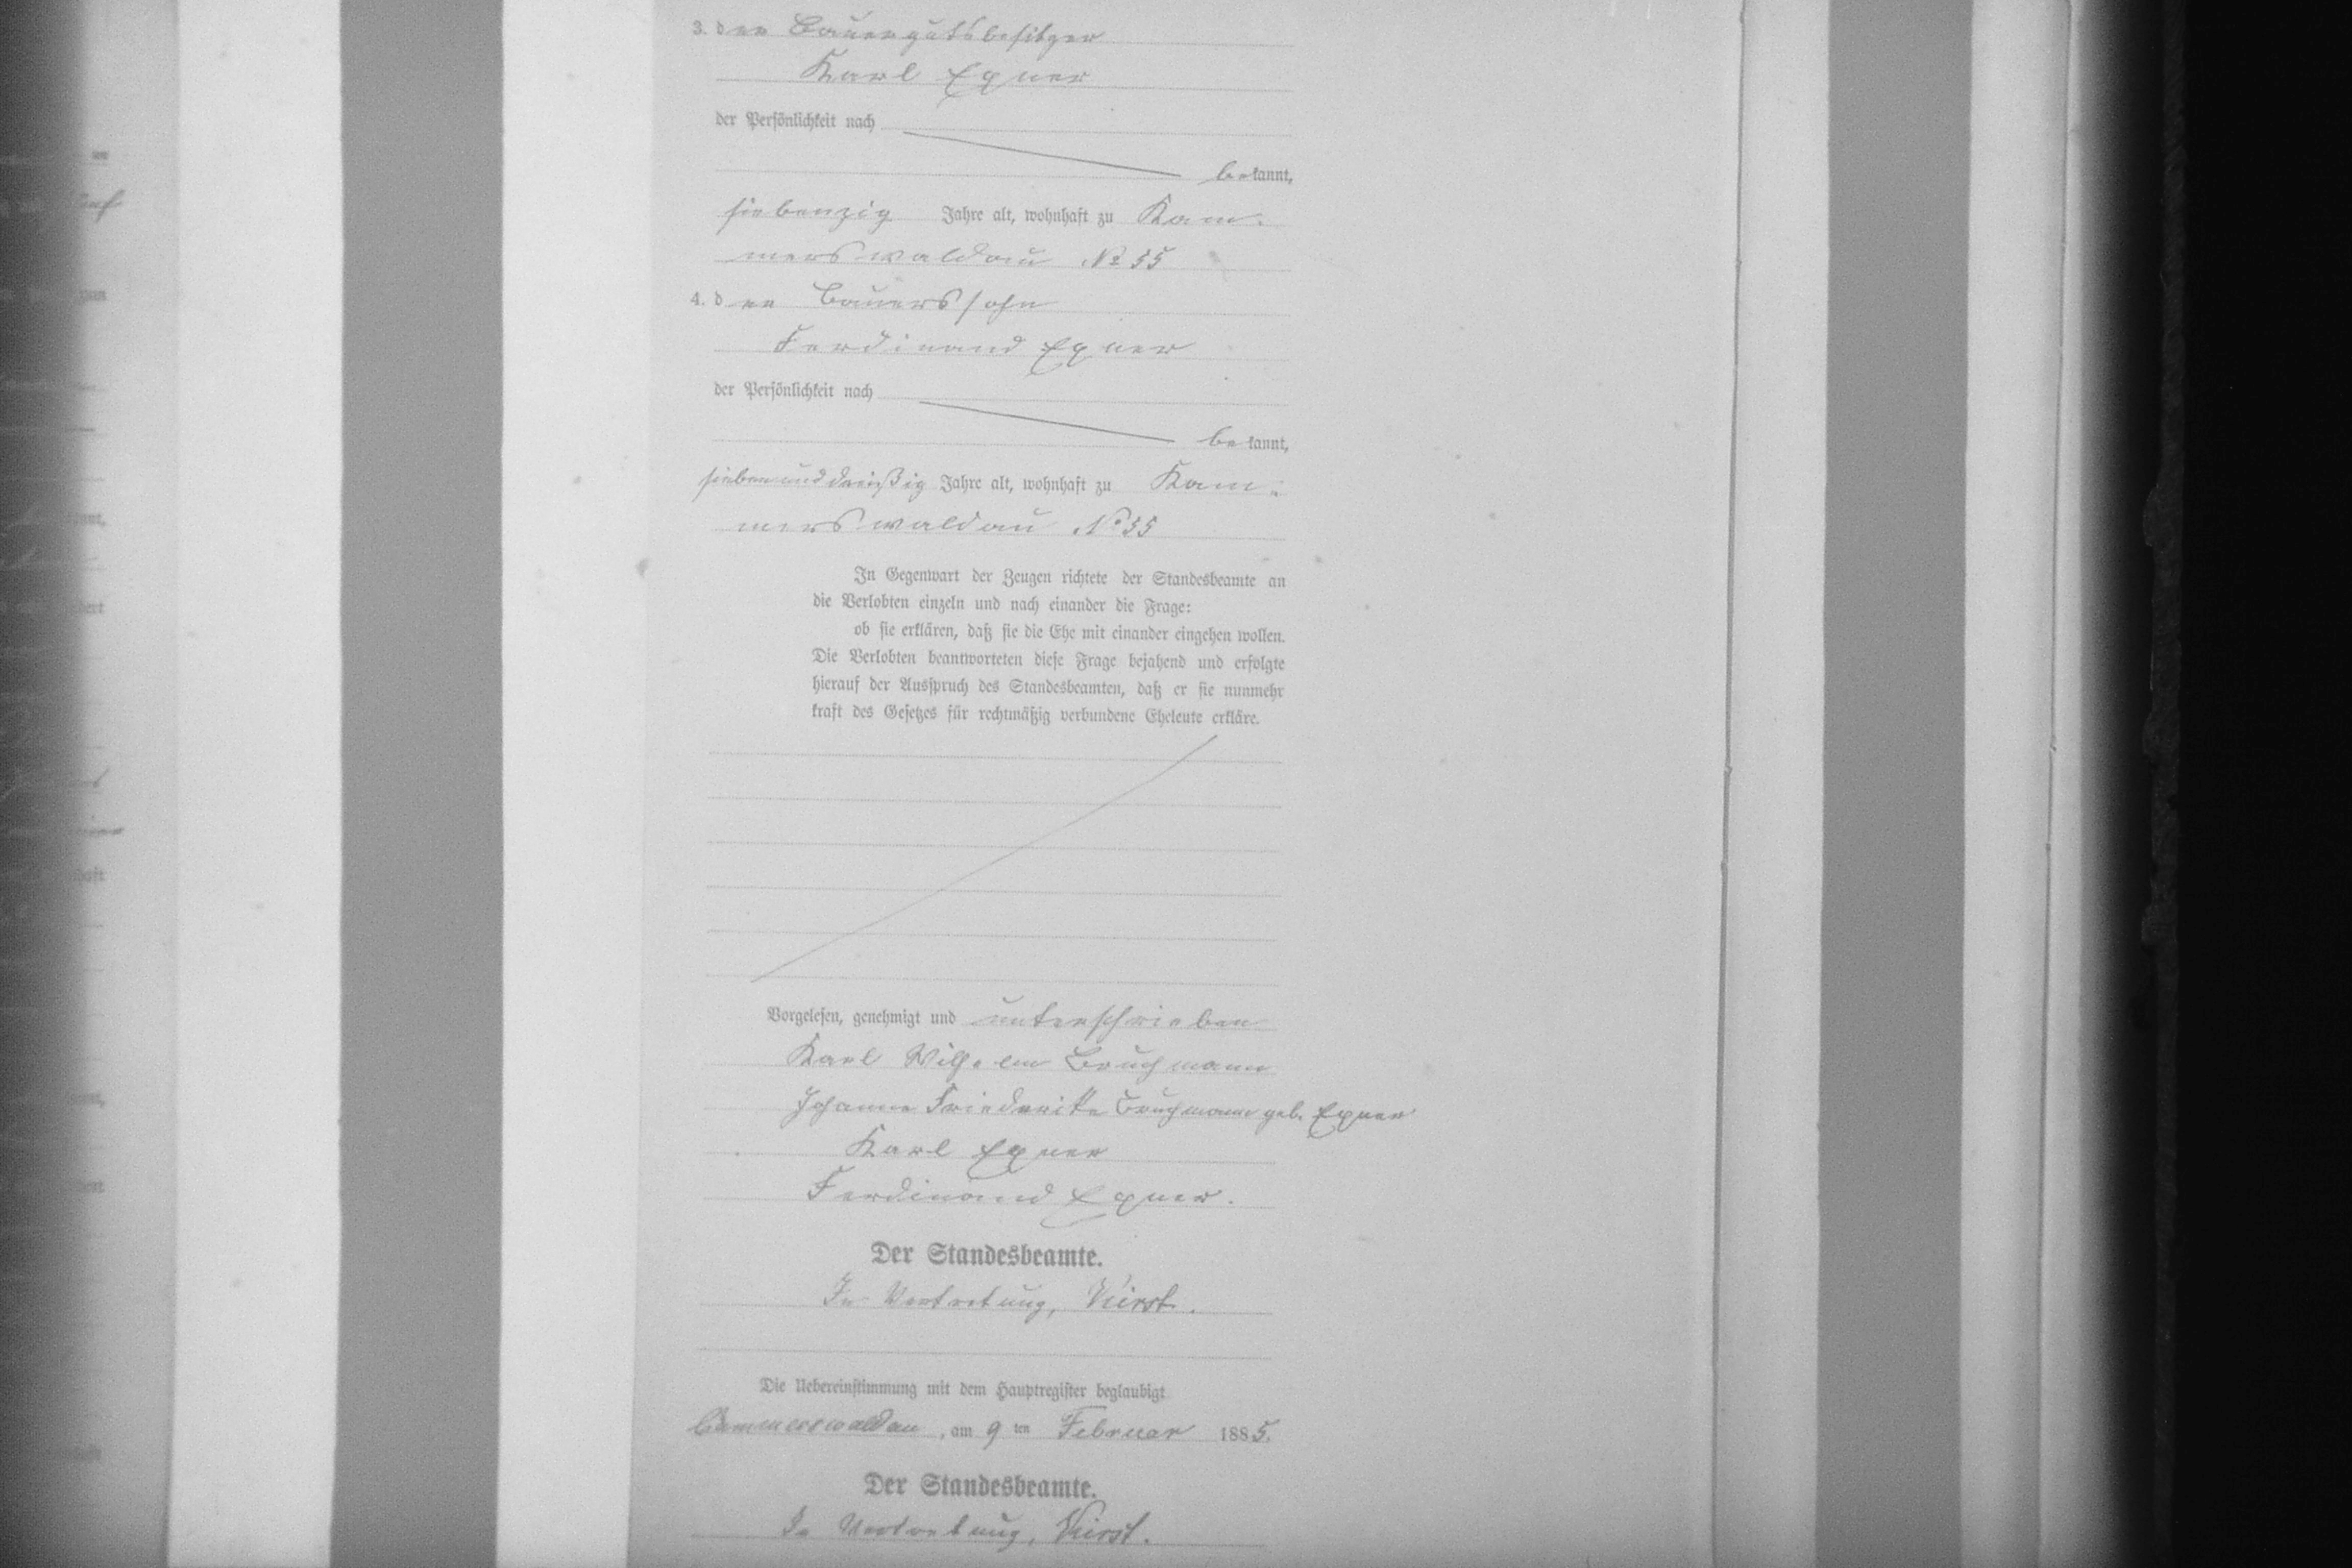 3. der Bauergutsbesitzer
Karl Exner
der Persönlichkeit nach
bekannt,
siebenzig Jahre alt, wohnhaft zu Kam-
merswaldau № 55
4. der Bauerssohn
Ferdinand Exner
der Persönlichkeit nach
bekannt,
siebenunddreißig Jahre alt, wohnhaft zu Kam-
merswaldau № 55
In Gegenwart der Zeugen richtete der Standesbeamte an
die Verlobten einzeln und nach einander die Frage:
ob sie erklären, daß sie die Ehe mit einander eingehen wollen.
Die Verlobten beantworteten diese Frage bejahend und erfolgte
hierauf der Ausspruch des Standesbeamten, daß er sie nunmehr
kraft des Gesetzes für rechtmäßig verbundene Eheleute erkläre.
Vorgelesen, genehmigt und unterschrieben
Karl Wilhelm Bruchmann
Johanne Friederike Bruchmann geb. Exner
Karl Exner
Ferdinand Exner.
Der Standesbeamte.
In Vertretung,
Die Uebereinstimmung mit dem Hauptregister beglaubigt
Cammerswaldau, am 9 ten Februar 1885.
Der Standesbeamte.
In Vertretung,